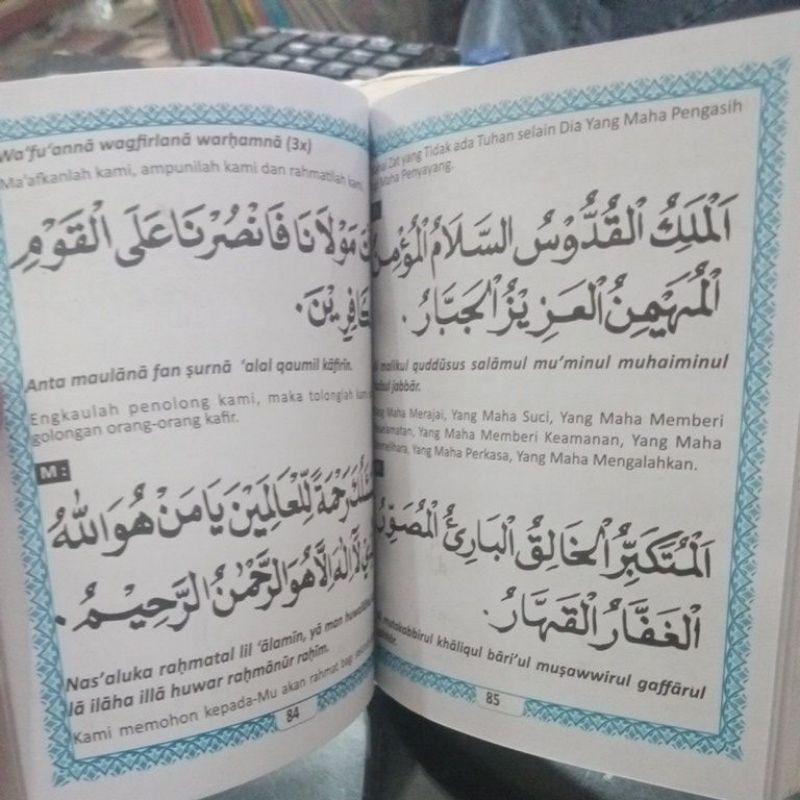 Wa'fu'annā wagfirlanā warḥamnā (3x)
Ma'afkanlah kami, ampunilah kami dan rahmatilah kami
مَوْلَانَا فَانْصُرْنَا عَلَى الْقَوْمِ
Anta maulānā fan ṣurnā 'alal qaumil kāfirīn.
Engkaulah penolong kami, maka tolonglah kami
golongan orang-orang kafir.
M :
رَحْمَةً لِّلْعَالَمِيْنَ يَا مَنْ هُوَ اللّٰهُ
لَآ اِلٰهَ اِلَّا هُوَ الرَّحْمٰنُ الرَّحِيْمُ .
Nas'aluka raḥmatal lil 'ālamīn, yā man huwallāhul
lā ilāha illā huwar raḥmānur raḥīm.
Kami memohon kepada-Mu akan rahmat bagi
84
Zat yang Tidak ada Tuhan selain Dia Yang Maha Pengasih
Maha Penyayang.
اَلْمَلِكُ الْقُدُّوْسُ السَّلَامُ الْمُؤْمِنُ
الْمُهَيْمِنُ الْعَزِيْزُ الْجَبَّارُ .
malikul quddūsus salāmul mu'minul muhaiminul
jabbār.
Yang Maha Merajai, Yang Maha Suci, Yang Maha Memberi
Yang Maha Memberi Keamanan, Yang Maha
Yang Maha Perkasa, Yang Maha Mengalahkan.
اَلْمُتَكَبِّرُ الْخَالِقُ الْبَارِئُ الْمُصَوِّرُ
الْغَفَّارُ الْقَهَّارُ .
mutakabbirul khāliqul bāri'ul muṣawwirul gaffārul
85